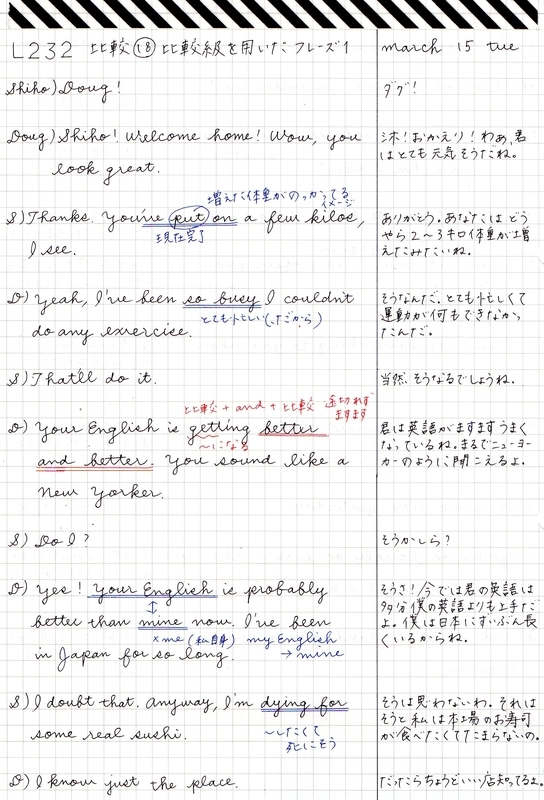 L232 比較⑱比較級を用いたフレーズ1 march 15 tue
Shiho) Doug!
ダグ!
Doug) Shiho! Welcome home! Wow, you
look great.
シホ!おかえり!わあ、君
はとても元気そうだね。
増えた体重がのっかってる
イメージ
S) Thanks. You've put on a few kilos,
現在完了
I see.
ありがとう。あなたは どう
やら2〜3キロ体重が増
えたみたいね。
D) Yeah, I've been so busy I couldn't
とても忙しい(だから)
do any exercise.
そうなんだ。とても忙しくて
運動が何もできなかっ
たんだ。
S) That'll do it.
当然 そうなるでしょうね。
比較+and+比較 途切れず
ますます
D) Your English is getting better
〜になる
and better. You sound like a
New Yorker.
君は英語がますますうまく
なっているね。まるでニューヨー
カーのように聞こえるよ。
S) Do I?
そうかしら?
D) Yes! Your English is probably
↕
better than mine now. I've been
×me (私自身) my English
in Japan for so long.
→ mine
そうさ!今では君の英語は
多分僕の英語よりも上手だ
よ。僕は日本にずいぶん長
くいるからね。
S) I doubt that. Anyway, I'm dying for
some real sushi.
〜したくて
死にそう
そうは思わないわ。それは
そうと私は本場のお寿司
が食べたくてたまらないの。
D) I know just the place.
だったらちょうどいい店知ってるよ。